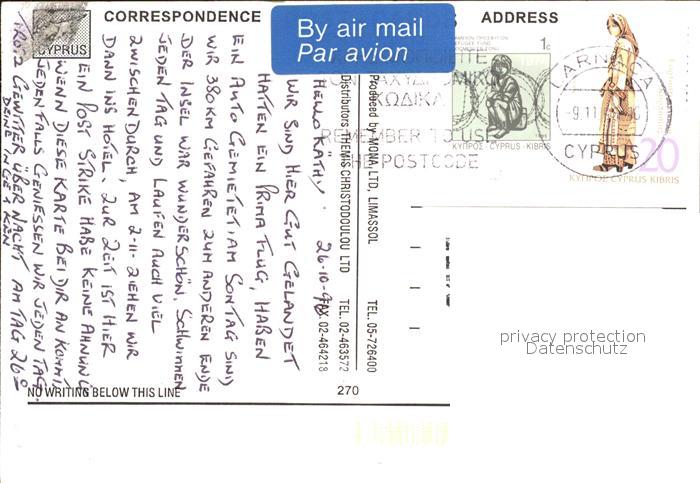 CORRESPONDENCE
ADDRESS
By air mail
Par avion
CYPRUS
HELLO KÄTHY. 26-10-98
WIR SIND HIER GUT GELANDET
HATTEN EIN PRIMA FLUG, HABEN
EIN AUTO GEMIETET, AM SONTAG SIND
WIR 380KM GEFAHREN ZUM ANDEREN ENDE
DER INSEL WAR WUNDERSCHÖN, SCHWIMMEN
JEDEN TAG UND LAUFEN AUCH VIEL
ZWISCHENDURCH, AM 2-11- ZIEHEN WIR
DANN INS HOTEL. ZUR ZEIT IST HIER
EIN POST STRIKE HABE KEINE AHNUNG
WENN DIESE KARTE BEI DIR AN KOMMT
JEDEN FALLS GENIESSEN WIR JEDEN TAG
TROTZ GEWITTER ÜBER NACHT AM TAG 26°
DEINE INGE & KEN
Distributors: THEMIS CHRISTODOULOU LTD TEL. 02-463572 FAX. 02-464218
Produced by MOMA LTD, LIMASSOL TEL. 05-726400
NO WRITING BELOW THIS LINE
270
1c
1974
ΚΩΔΙΚΑ
REMEMBER TO USE
THE POSTCODE
ΚΥΠΡΟΣ · CYPRUS · KIBRIS
LARNACA
-9.11
CYPRUS
20
ΚΥΠΡΟΣ CYPRUS KIBRIS
privacy protection
Datenschutz